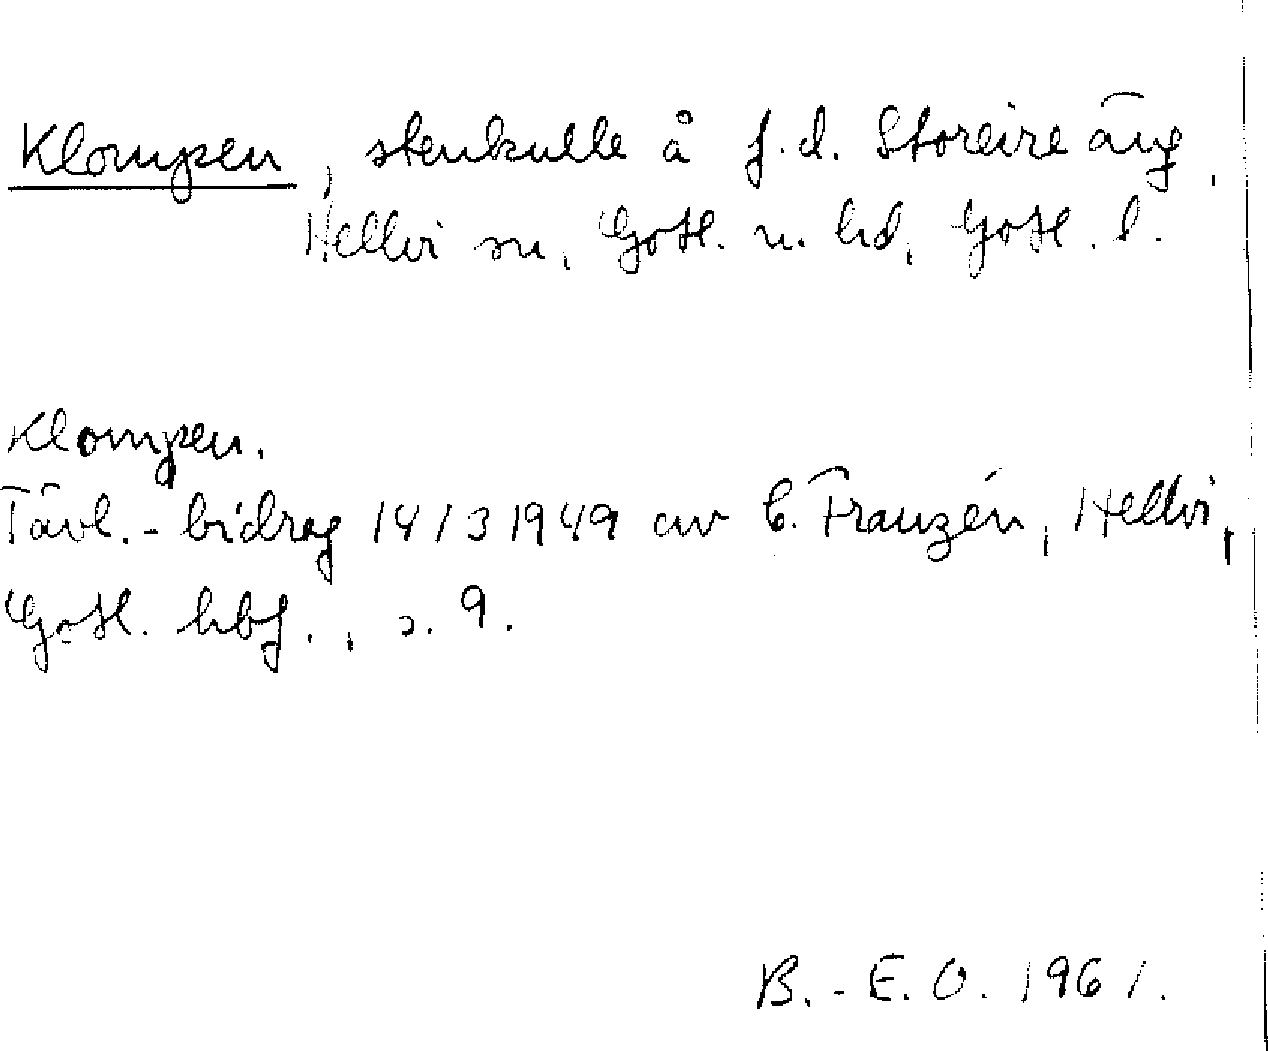 Klompen, stenkulle å f.d. Storeire äng,
Hellvi sn, Gotl. n. hd, Gotl. l.
Klompen.
Tävl.-bidrag 14/3 1949 av C. Franzén, Hellvi,
Gotl. hbf., s. 9.
B.-E.O. 1961.